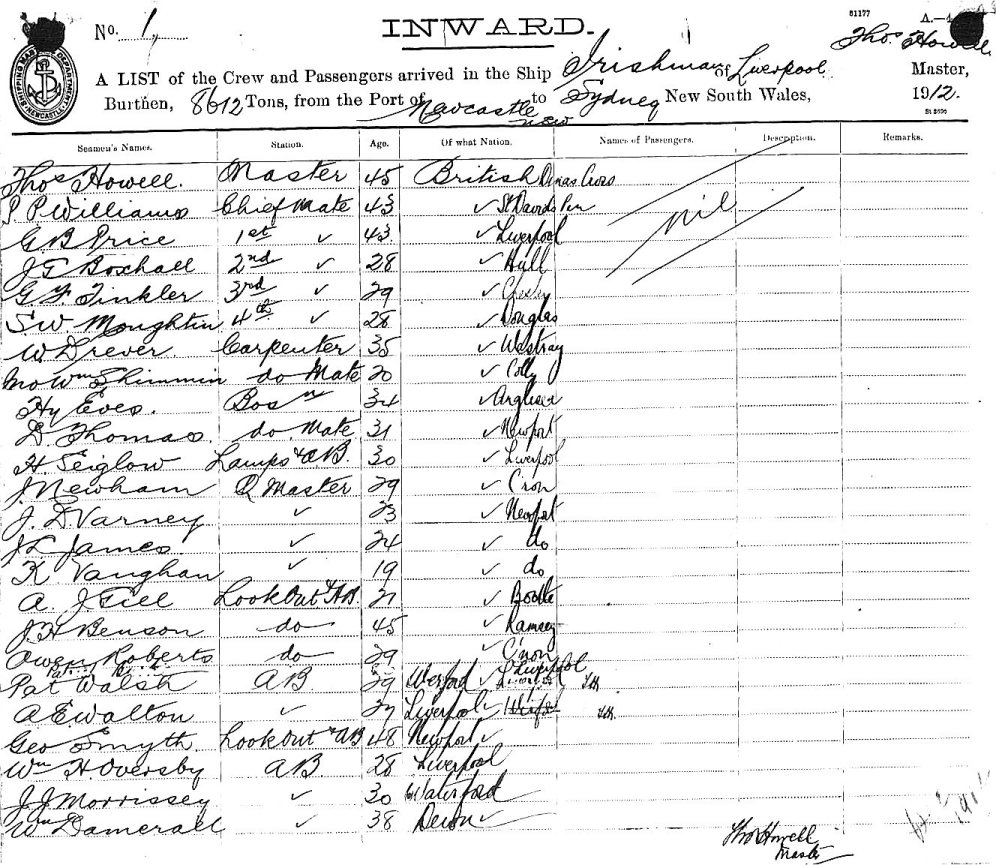 No. 1,
INWARD.
81177
A.—4
Thos Howell
A LIST of the Crew and Passengers arrived in the Ship Irishman of Liverpool Master,
Burthen, 8612 Tons, from the Port of Newcastle NSW to Sydney New South Wales, 1912.
Seamen's Names. Station. Age. Of what Nation. Names of Passengers. Description. Remarks.
Thos Howell. Master 45 British Dinas Cross
nil
P. P Williams Chief Mate 43 ✓ St Davids Pem
G B Price 1st ✓ 43 ✓ Liverpool
J G Boxhall 2nd ✓ 28 ✓ Hull
G F Tinkler 3rd ✓ 29 ✓
S W Moughtin 4th ✓ 28 ✓ Douglas
W Drever Carpenter 35 ✓ Westray
Jno Wm Shimmin do Mate 20 ✓ Colby
Hy Eves. Bosn 34 ✓ Anglesea
D. Thomas do. Mate 31 ✓ Newport
H. Seiglow Lamps & AB. 30 ✓ Liverpool
J Newham Q Master 29 ✓ C'von
J. D Varney ✓ 23 ✓ Newport
J L James. ✓ 24 ✓ do
K. Vaughan ✓ 19 ✓ do
A. J Gill Lookout & AB. 21 ✓ Bootle
J. H Benson do 45 ✓ Ramsey
Owen Roberts do 29 ✓ C'von
Pat Walsh AB 29 Wexford ✓ Liverpool
A E Walton ✓ 27 Liverpool ✓
Geo Smyth Lookout & AB 48 Newport ✓
Wm H. Oversby AB. 28 Liverpool
J J Morrissey ✓ 30 Waterford
Wm Damerall ✓ 38 Devon ✓
Thos Howell
Master